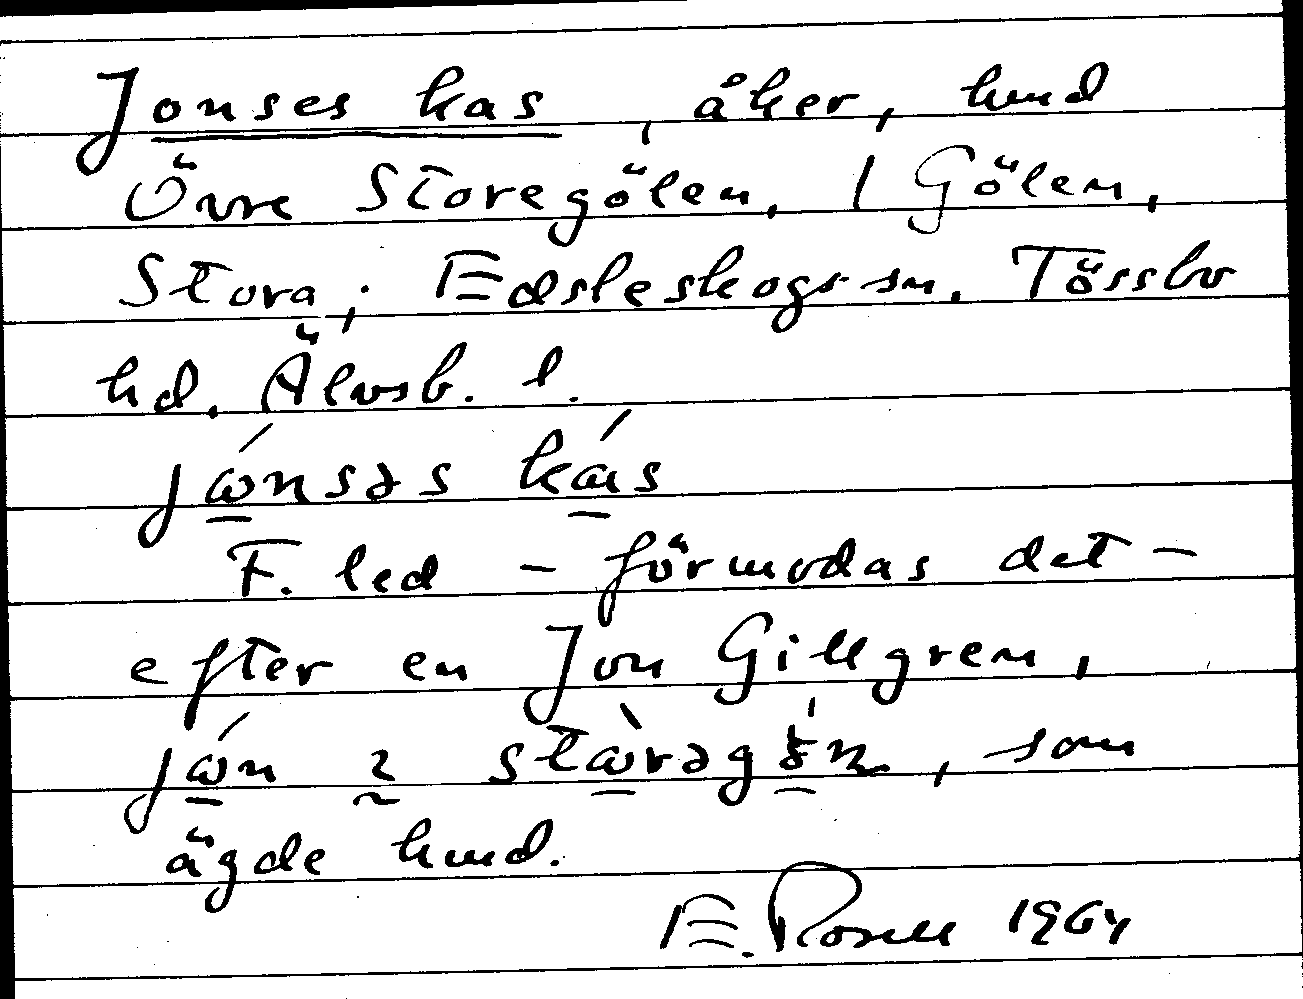 Jonses kas, åker, hmd
Övre Storegölen, 1 Gölen,
Stora; Edsleskogs sn. Tössbo
hd. Älvsb. l.
jώnsəs kás
F. led – förmodas det –
efter en Jon Gillgren,
jώn
ägde hmd.
E. Rosell 1964